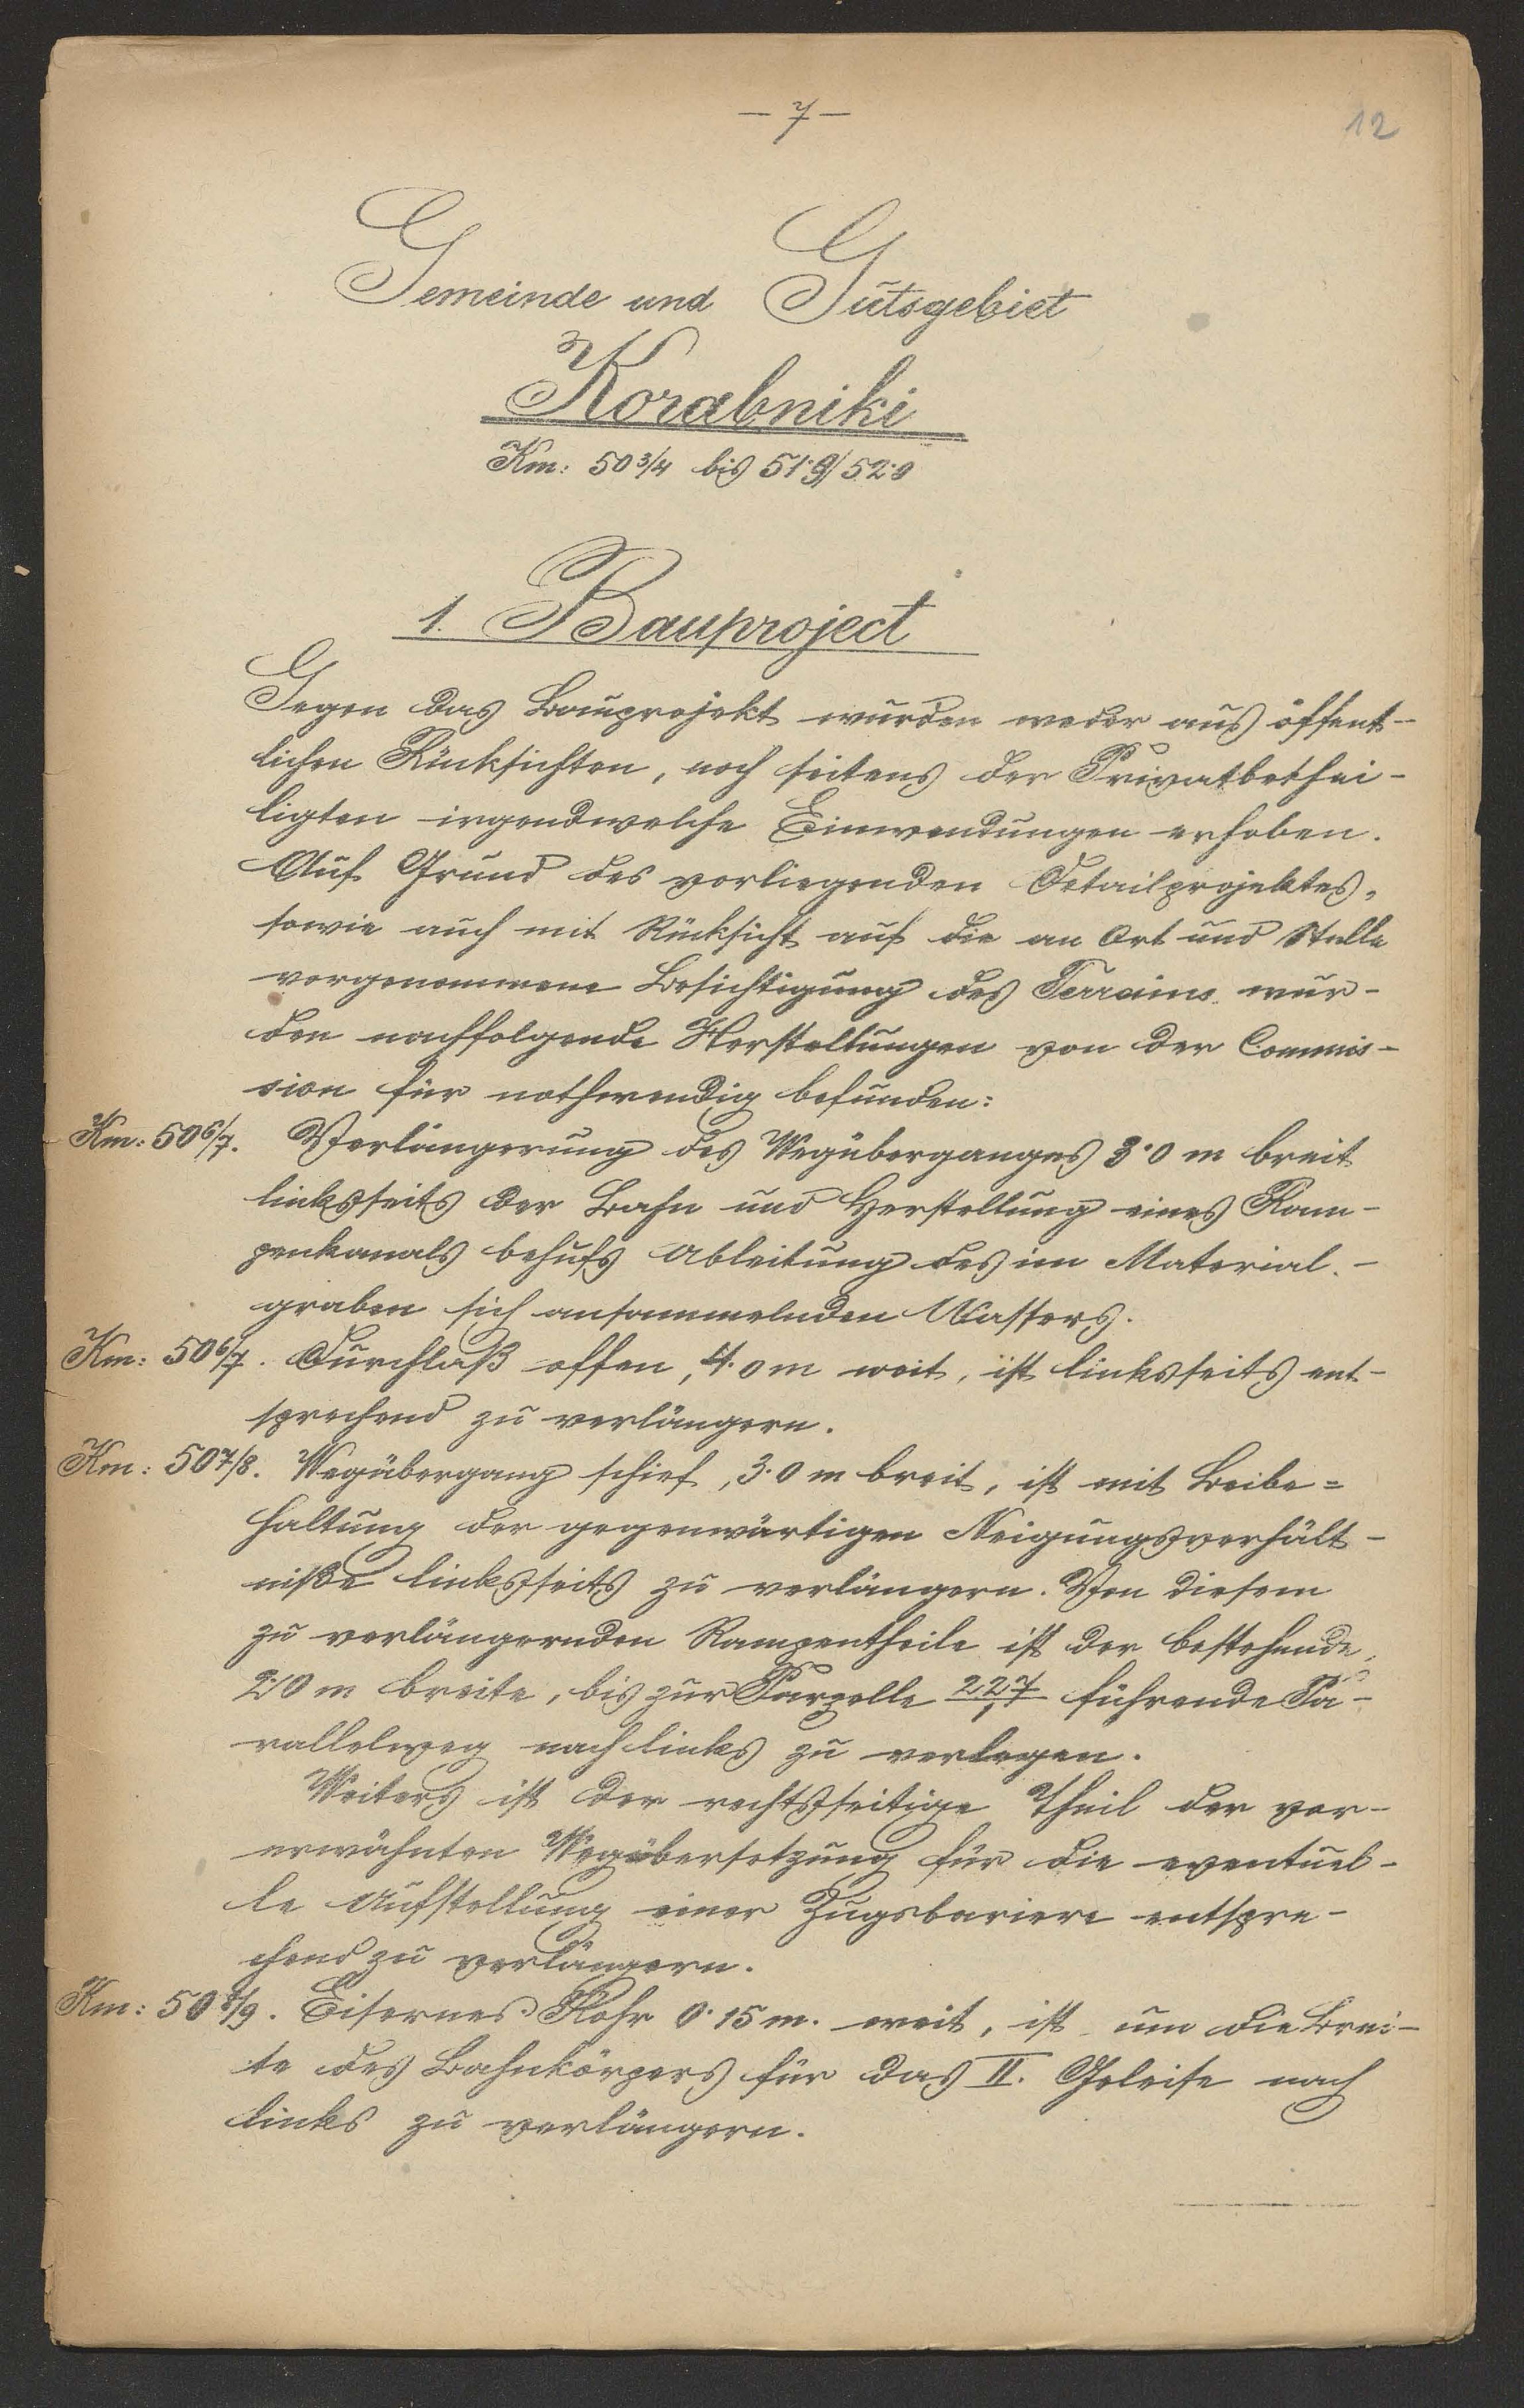 — 7 —
12
Gemeinde und Gutsgebiet
Korabniki
Km: 50 3/4 bis 51·9/52·0
1. Bauproject
Gegen das Bauprojekt wurden weder aus öffent-
lichen Rücksichten, noch seitens der Privatbethei-
ligten irgendwelche Einwendungen erhoben.
Auf Grund des vorliegenden Detailprojektes,
sowie auch mit Rücksicht auf die an Ort und Stelle
vorgenommene Besichtigung des Terrains wur-
den nachfolgende Herstellungen von der Commis-
sion für nothwendig befunden:
Km: 50 6/7. Verlängerung des Wegüberganges 3·0 m breit
linksseits der Bahn und Herstellung eines Ram-
penkanals behufs Ableitung des im Material-
graben sich ansammelnden Wassers.
Km: 50 6/7. Durchlaß offen, 4·0 m weit, ist linksseits ent-
sprechend zu verlängern.
Km: 50 7/8. Wegübergang schief, 3·0 m breit, ist mit Beibe=
haltung der gegenwärtigen Neigungsverhält-
niße linksseits zu verlängern. Von diesem
zu verlängernden Rampentheile ist der bestehende,
2·0 m breite, bis zur Parzelle 227/1 führende Pa-
rallelweg nach links zu verlegen.
Weiters ist der rechtsseitige Theil der vor-
erwähnten Wegübersetzung für die eventuel-
le Aufstellung einer Zugsbariere entspre-
chend zu verlängern.
Km: 50 8/9. Eisernes Rohr 0·15 m. weit, ist um die Brei-
te des Bahnkörpers für das II. Geleise nach
links zu verlängern.